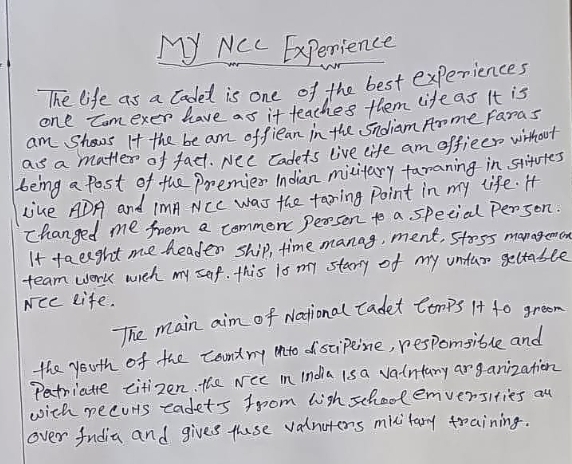 My NCC Experience
The life as a Cadet is one of the best experiences
one Can exer have as it teaches them life as It is
am Shows It the be am offiean in the Indiam Arome Faras
as a matter of fact. NCC Cadets live life am officer without
being a Post of the Premier Indian military taraning in Stitutes
like ADA and IMA NCC was the taring Point in my life. It
Changed me from a Commenc person to a special Person.
It taeught me header ship, time manag, ment, Stress management
team work wich my saf. this is my story of my untur gettable
NCC life.
The main aim of National Cadet Corps It to groom
the youth of the Country Into discipeine, responsible and
Patriatie citizen. the NCC in India is a valntany arganization
wich recuits Cadets from high school emversities all
over India and gives these valnuters military training.